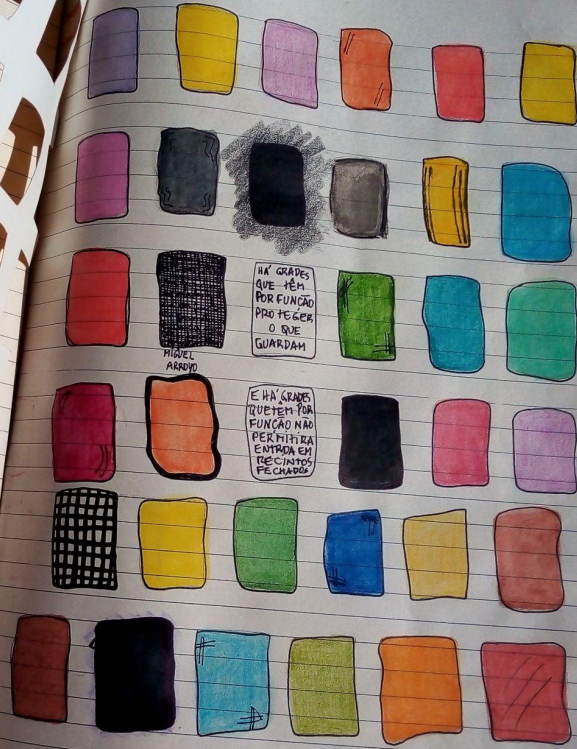 HÁ GRADES
QUE TÊM
POR FUNÇÃO
PROTEGER
O QUE
GUARDAM
MIGUEL
ARROYO
E HÁ GRADES
QUE TÊM POR
FUNÇÃO NÃO
PERMITIR A
ENTRADA EM
RECINTOS
FECHADOS